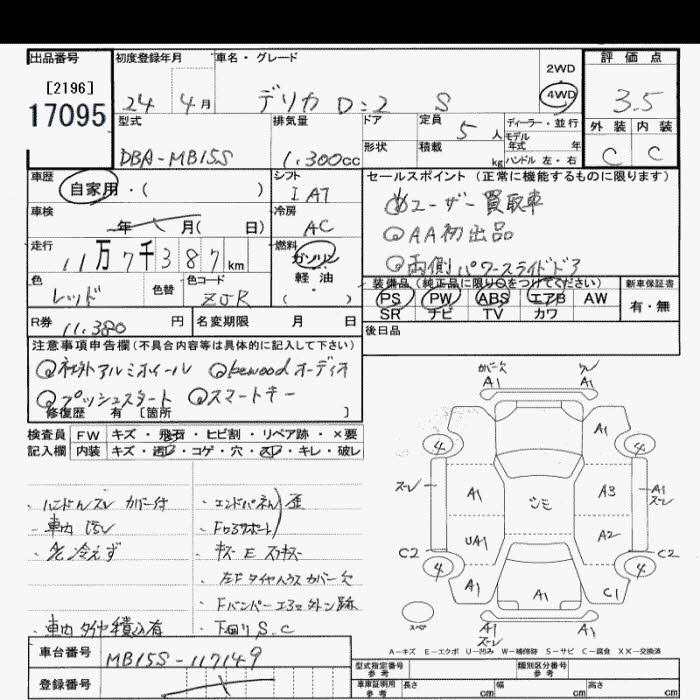 出品番号 初度登録年月 車名・グレード 2WD 評価点
[2196]
17095
24 4月 デリカ D:2 S 4WD 3.5
型式 排気量 ドア 定員 5人 ディーラー・並行 外装 内装
モデル年式 年
DBA-MB15S 1.300cc 形状 積載 kg ハンドル 左・右 C C
車歴 自家用・( ) シフト IAT セールスポイント (正常に機能するものに限ります)
ユーザー買取車
車検 年 月( 日) 冷房 AC
AA初出品
走行 11万7千387km 燃料 ガソリン
両側パワースライドドア
軽油
( )
色 レッド 色替 色コード ZJR
装備品(純正品に限り○をつけてください) 新車保証書
PS PW ABS エアB AW 有・無
SR ナビ TV カワ
R券 11.380円 名変期限 月 日
後日品
注意事項申告欄(不具合内容等は具体的に記入して下さい)
社外アルミホイール kewoodオーディオ
プッシュスタート スマートキー
修復歴 有 [箇所 ]
検査員 FW キズ・飛石・ヒビ割・リペア跡・×要
記入欄 内装 キズ・汚レ・コゲ・穴・スレ・キレ・破レ
・ハンドルスレ カバー付 ・エンドパネル 歪
・車内汚レ ・Fロアサポート
・気冷えず ・キズ E スリキズ
・左Fタイヤハウスカバー欠
・Fバンパー
・車内タイヤ積込有 ・下回りS.C
車台番号 MB15S-117149
登録番号
カバー欠 A1
A1
A1
4 4
スレ A1 ツミ A3 A1 スレ
UA1 A2
C2 C2
4 4
A1 A1 C1
スペア
A1 スレ A1
A-キズ E-エクボ U-凹み W-補修跡 S-サビ C-腐食 XX-交換済
型式指定番号 参考 類別区分番号 参考
車庫証明用 参考 長さ cm 幅 cm 高さ cm